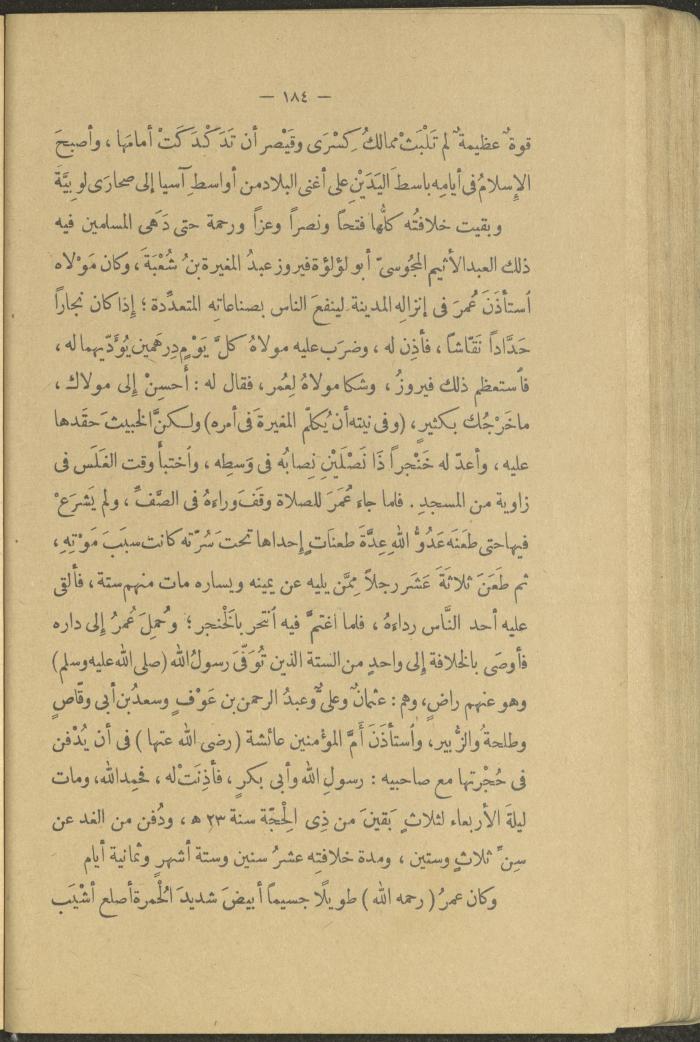 — ١٨٤ —
قوة عظيمة لم تَلْبَثْ ممالكُ كِسْرَى وقَيْصر أن تَدَكْدَكَتْ أمامَها ، وأصبحَ
الإِسلامُ فى أيامِه باسطَ اليَدَيْنِ على أغنى البلاد من أواسط آسيا إلى صحارَى لُوبِيَّةَ
وبقيت خلافتُه كلُّها فتحاً ونصراً وعزاً ورحمة حتى دَهَى المسلمين فيه
ذلك العبدالأثيم المجُوسىّ أبو لؤلؤة فيروز عبدُ المغيرة بنُ شُعْبَةَ ، وكان مَوْلاه
ٱستأذَنَ عُمرَ فى إنزالِه المدينة لينفعَ الناس بصناعاتِه المتعدِّدة ؛ إذا كان نجاراً
حَدَّاداً نَقّاشاً ، فأذِن له ، وضرَب عليه مولاهُ كلَّ يَوْمٍ دِرهَمين يُؤدّيهما له ،
فٱستعظم ذلك فيروزُ ، وشكا مولاهُ لعُمر ، فقال له : أَحسِنْ إلى مولاك ،
ما خَرْجُك بكثيرٍ ، (وفى نيته أن يُكلّم المغيرةَ فى أمره) ولكنَّ الخبيثَ حقَدها
عليه ، وأعدّ له خَنْجراً ذَا نَصْلَيْنِ نِصابُه فى وَسَطِه ، وٱختبأ وقت الغَلَس فى
زاوية من المسجدِ . فلما جاء عُمَرَ للصلاة وقَفَ وراءَهُ فى الصَّفِّ ، ولم يَشرَعْ
فيها حتى طَعَنَه عَدُوُّ اللهِ عِدَّةَ طعناتٍ إحداها تحتَ سُرّته كانت سببَ مَوْتِهِ ،
ثم طَعَنَ ثلاثَةَ عَشَر رجلاً مِمَّن يليه عن يمينه ويساره مات منهم ستة ، فألقى
عليه أحد النَّاس رداءهُ ، فلما اغتمَّ فيه ٱنتحر بالخَنجر ؛ وحُمِلَ عُمرُ إلى داره
فأوصَى بالخلافة إلى واحدٍ من الستة الذين تُوَفّىَ رسولُ الله (صلى الله عليه وسلم)
وهو عنهم راضٍ، وهم : عثمانُ وعلىٌّ وعبدُ الرحمن بن عَوْفٍ وسعدُ بن أبى وقّاصٍ
وطلحةُ والزُّبير، وٱستأذَنَ أمَّ المؤمنين عائشة (رضى الله عنها) فى أن يُدْفن
فى حُجْرتها مع صاحبيه : رسولِ الله وأبى بكرٍ ، فأذِنَتْ له ، فحمِدالله، ومات
ليلةَ الأربعاء لثلاثٍ بَقينَ من ذِى الحِجّة سنة ٢٣ ه ، ودُفن من الغد عن
سِنِّ ثلاثٍ وستين ، ومدة خلافتِه عشرُ سنين وستة أشهرٍ وثمانية أيام
وكان عمرُ (رحمه الله) طويلًا جسيماً أبيضَ شديدَ الحُمرة أصلع أشْيَب